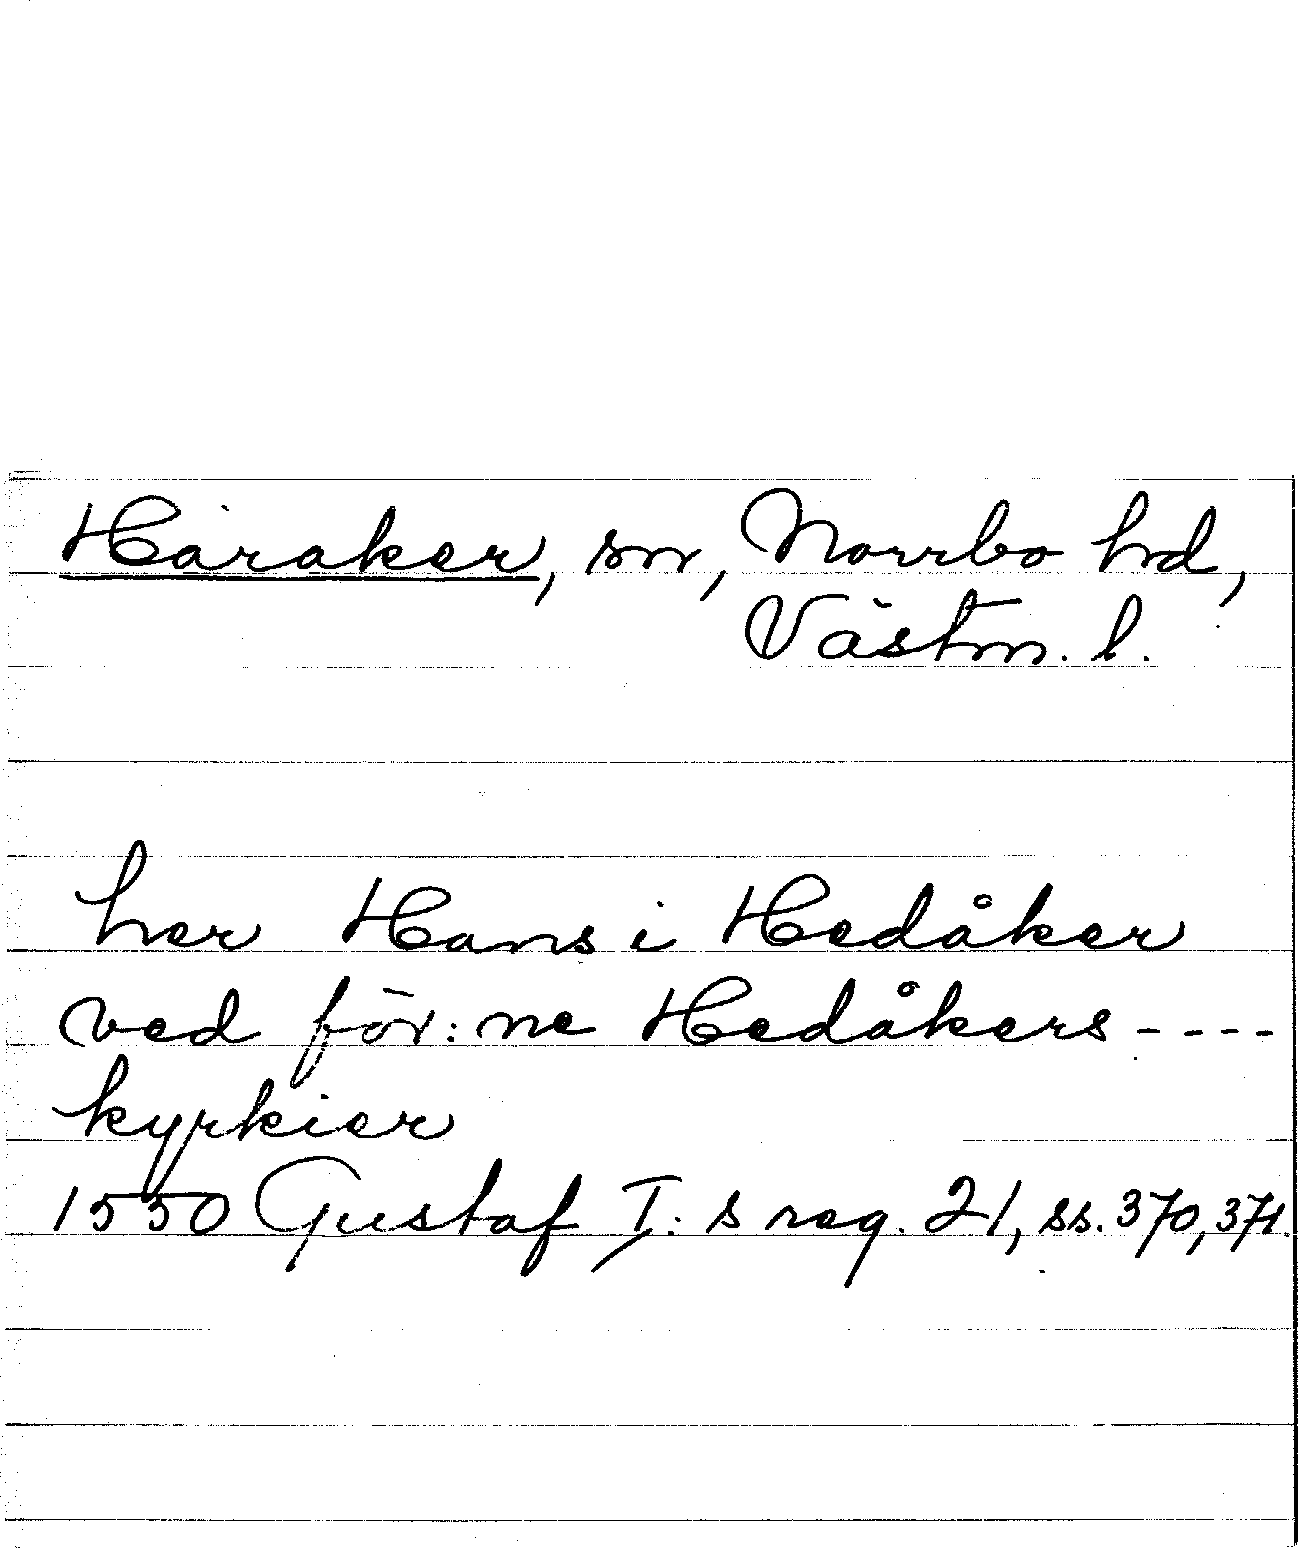 Haraker, sn, Norrbo hd,
Västm. l.
her Hans i Hedåker
ved för:ne Hedåkers ----
kyrkier
1550 Gustaf I:s reg. 21, ss. 370, 371.